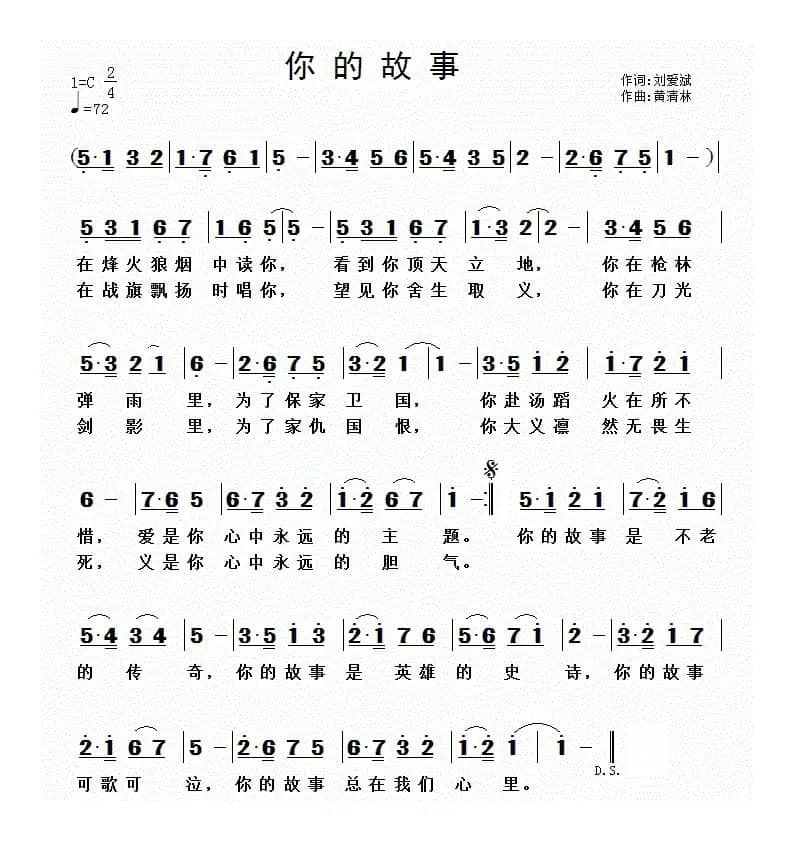 你的故事
1=C 2/4
作词:刘爱斌
♩=72
作曲:黄清林
(5·1 3 2|1·7 6 1|5 –|3·4 5 6|5·4 3 5|2 –|2·6 7 5|1 –)|
5 3 1 6 7|1 6 5|5 –|5 3 1 6 7|1·3 2|2 –|3·4 5 6|
在烽火狼烟 中读你， 看到你顶天 立地， 你在枪林
在战旗飘扬 时唱你， 望见你舍生 取义， 你在刀光
5·3 2 1|6 –|2·6 7 5|3·2 1|1 –|3·5 1 2|1·7 2 1|
弹雨里，为了保家卫国， 你赴汤蹈 火在所不
剑影里，为了家仇国恨， 你大义凛 然无畏生
6 –|7·6 5|6·7 3 2|1·2 6 7|1 –:‖5·1 2 1|7·2 1 6|
惜， 爱是你 心中永远的主题。 你的故事是不老
死， 义是你 心中永远的胆气。
5·4 3 4|5 –|3·5 1 3|2·1 7 6|5·6 7 1|2 –|3·2 1 7|
的传奇，你的故事是英雄的史诗，你的故事
2·1 6 7|5 –|2·6 7 5|6·7 3 2|1·2 1|1 –‖
D.S.
可歌可泣，你的故事总在我们心里。